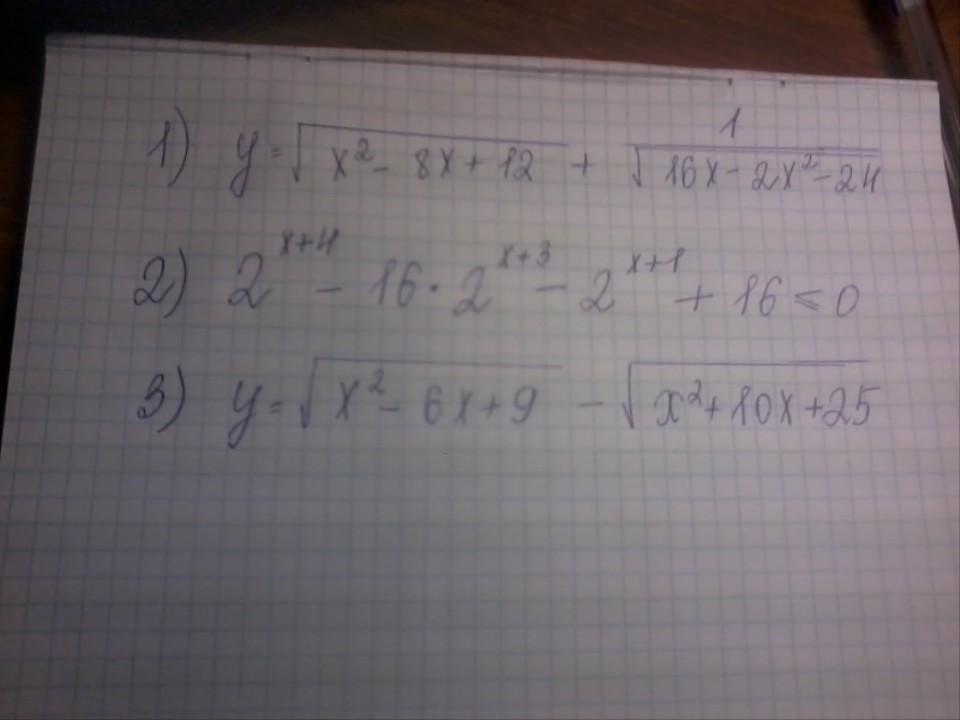 1) y = √(x² - 8x + 12) + 1/√(16x - 2x² - 24)
2) 2^(x+4) - 16 · 2^(x+3) - 2^(x+1) + 16 ≤ 0
3) y = √(x² - 6x + 9) - √(x² + 10x + 25)